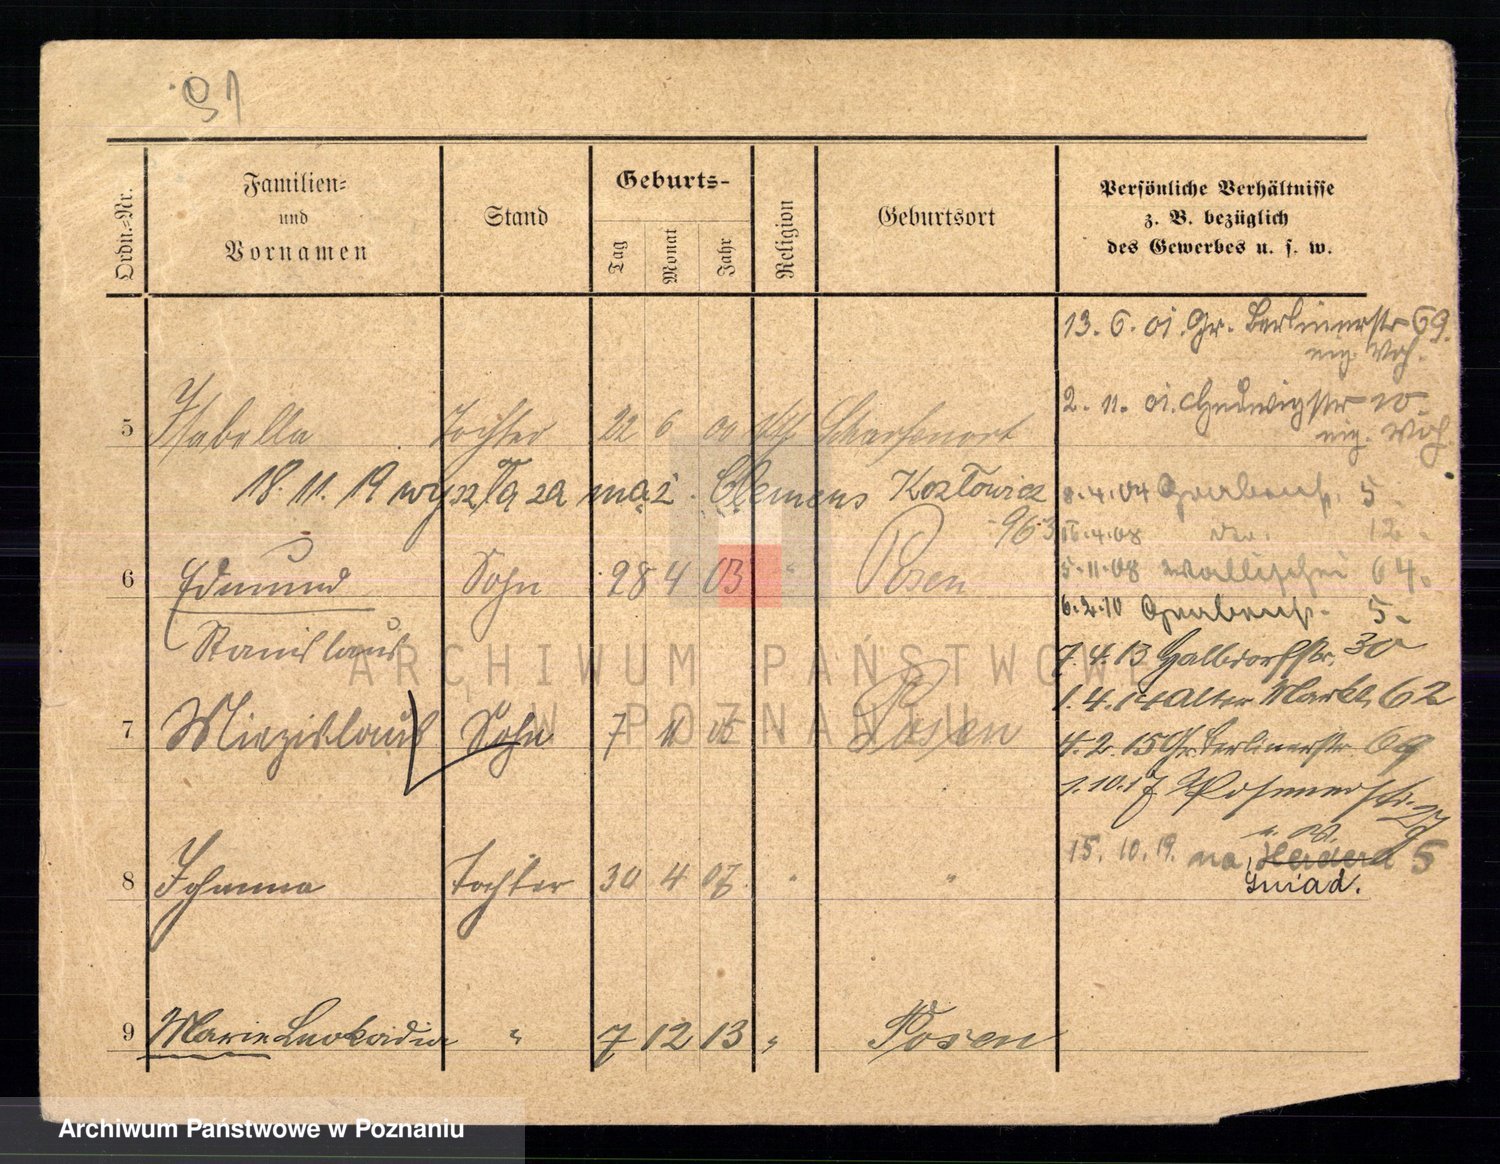 91
Ordn.-Nr.
Familien-
und
Vornamen
Stand
Geburts-
Tag
Monat
Jahr
Religion
Geburtsort
Persönliche Verhältnisse
z. B. bezüglich
des Gewerbes u. s. w.
13. 6. 01. Gr. Berlinerstr 69.
2. 11. 01. Hedwigstr 10
5 Isabella Tochter 22 6 00 Scharfenort
18. 11. 19 wyszła za mąż. Clemens Kozłowicz
963
8. 4. 04 Grabenstr. 5.
4. 08 12.
6 Edmund Sohn 28 4 03 " Posen
5. 11. 08 Wallischei 64.
6. 2. 10 Grabenstr. 5.
Stanislaus
7. 4. 13 Halbdorfstr. 30
1. 4. 14 Alter Markt 62
7 Miezislaus Sohn 7 11 05 Posen
4. 2. 15 Gr. Berlinerstr. 69
1. 10. 17 Posenerstr. 27
15. 10. 19. na 5
Gniad.
8 Johanna Tochter 30 4 07 " "
9 Marie Leokadia " 7 12 13 " Posen
ARCHIWUM PAŃSTWOWE
W POZNANIU
Archiwum Państwowe w Poznaniu